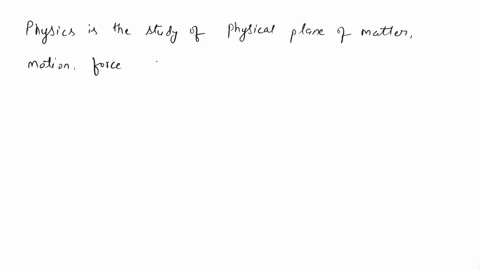 Physics is the study of physical plane of matter,
motion. force